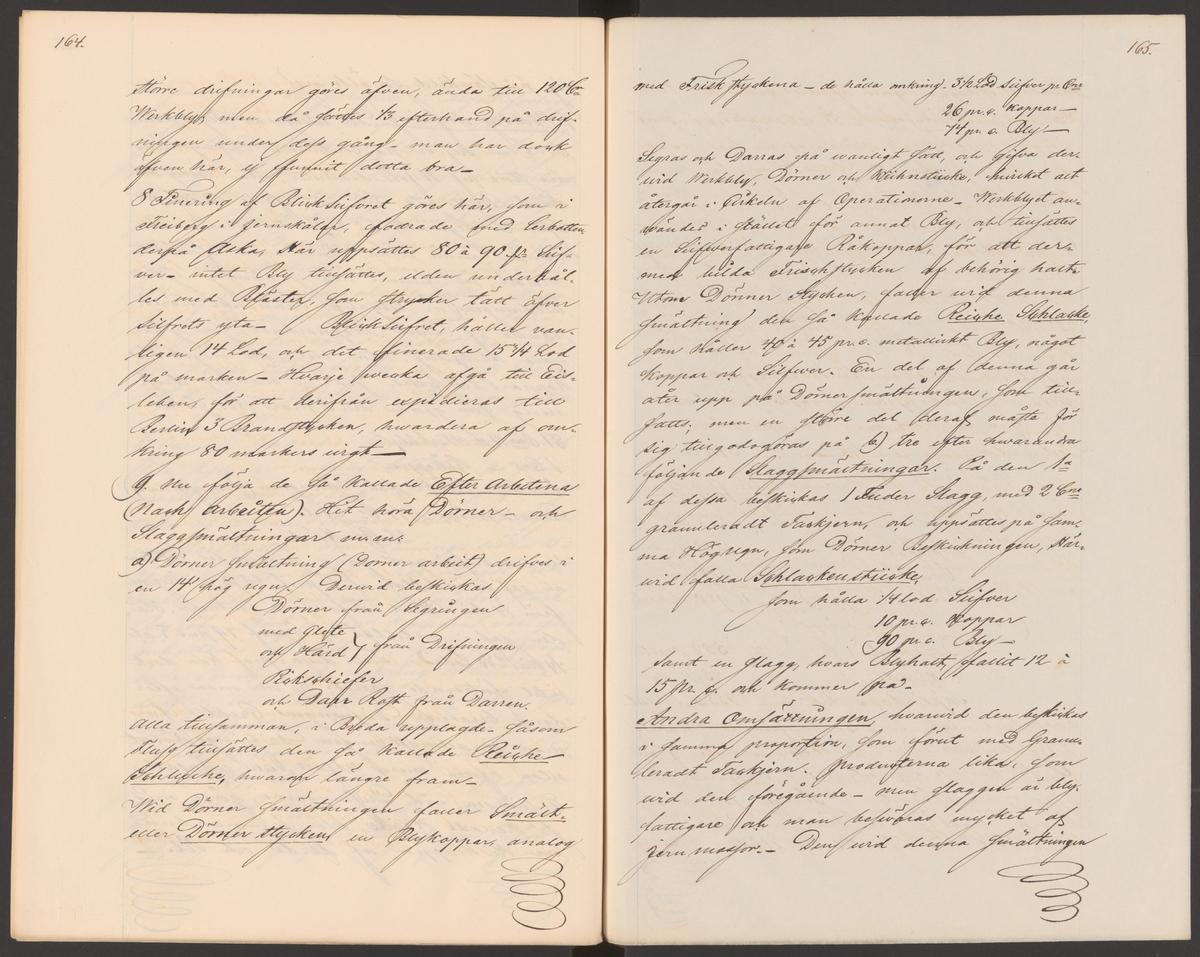 164.
större drifningar göres äfven, ända till 120 Cr
Werkbly, men då sättes 1/3 efterhand på drif-
ningen under dess gång - man har dock
äfven här, ej funnit detta bra -
8 Finering af Blicksilfvret göres här, som i
Freiberg i jernskålar, fodrade med
derpå Aska, Här uppsättes 80 à 90 Silf-
ver - intet Bly tillsättes, elden underhål-
les med Bläster, som stryker tätt öfver
silfrets yta - Blicksilfret, håller van-
ligen 14 Lod, och det finerade 15 3/4 Lod
på marken - Hvarje wecka afgå till Eis-
leben, för att derifrån expedieras till
Berlin 3 Brandstycken, hwardera af om-
kring 80 markers wigt -
9. Nu följa de så kallade Efter Arbetena
(Nach arbeiten). Hit höra Dörner - och
Slaggsmältningar
a) Dörner smältning (Dörner arbeit) drifves i
en 14' hög ugn. Derwid beskickas
Dörner från Segringen
med Glete
och Härd } från Drifningen
Pickschiefer
och Darr Rost från Darren.
alla tillsamman, i Bredd upplagde. Såsom
fluss tillsättes den så kallade Reiche
Schlacke, hwarom längre fram -
Wid Dörner smältningen faller Smält-
eller Dörner stycken, en Blykoppar, analog
165.
med Friskstyckena - de hålla omkring 3 1/2 Lod Silfver pr Cnr
26 pr. c. Koppar -
74 pr. c. Bly -
Segras och Darras på wanligt sätt, och gifva der-
wid Werkbly, Dörner och Kiehnstöcke, hwilket allt
återgår i Cirkeln af Operationerne - Werkblyet an-
vändes i stället för annat Bly, och tillsättes
en Silfwerfattigare Råkoppar, för att der-
med bilda Frischstycken af behörig halt.
Utom Dörner Stycken, faller wid denna
smältning den så kallade Reiche Schlacke,
som håller 40 à 45 pr. c. metalliskt Bly, något
Koppar och Silfwer. En del af denna går
åter upp på Dörnersmältningen, som till-
satts; men en större del deraf måste för
sig tillgodogöras på b) tre efter hwarandra
följande Slaggsmältningar. På den 1a
af dessa beskickas 1 Fuder Slagg, med 2 Cnr
granuleradt Tackjern, och uppsättes på sam-
ma Högugn, som Dörner Beskickningen, Här-
wid falla Schlackenstücke,
som hålla 1/4 lod Silfver
10 pr. c. Koppar
90 pr. c. Bly -
samt en slagg, hvars Blyhalt, fallit 12 à
15 pr. c. och kommer på -
Andra Omsättningen, hwarwid den beskickas
i samma proportion, som förut med Granu-
leradt Tackjern. producterna lika, som
wid den föregående - men slaggen är bly-
fattigare och man beswäras mycket af
jernmassor. - Den wid denna smältningen